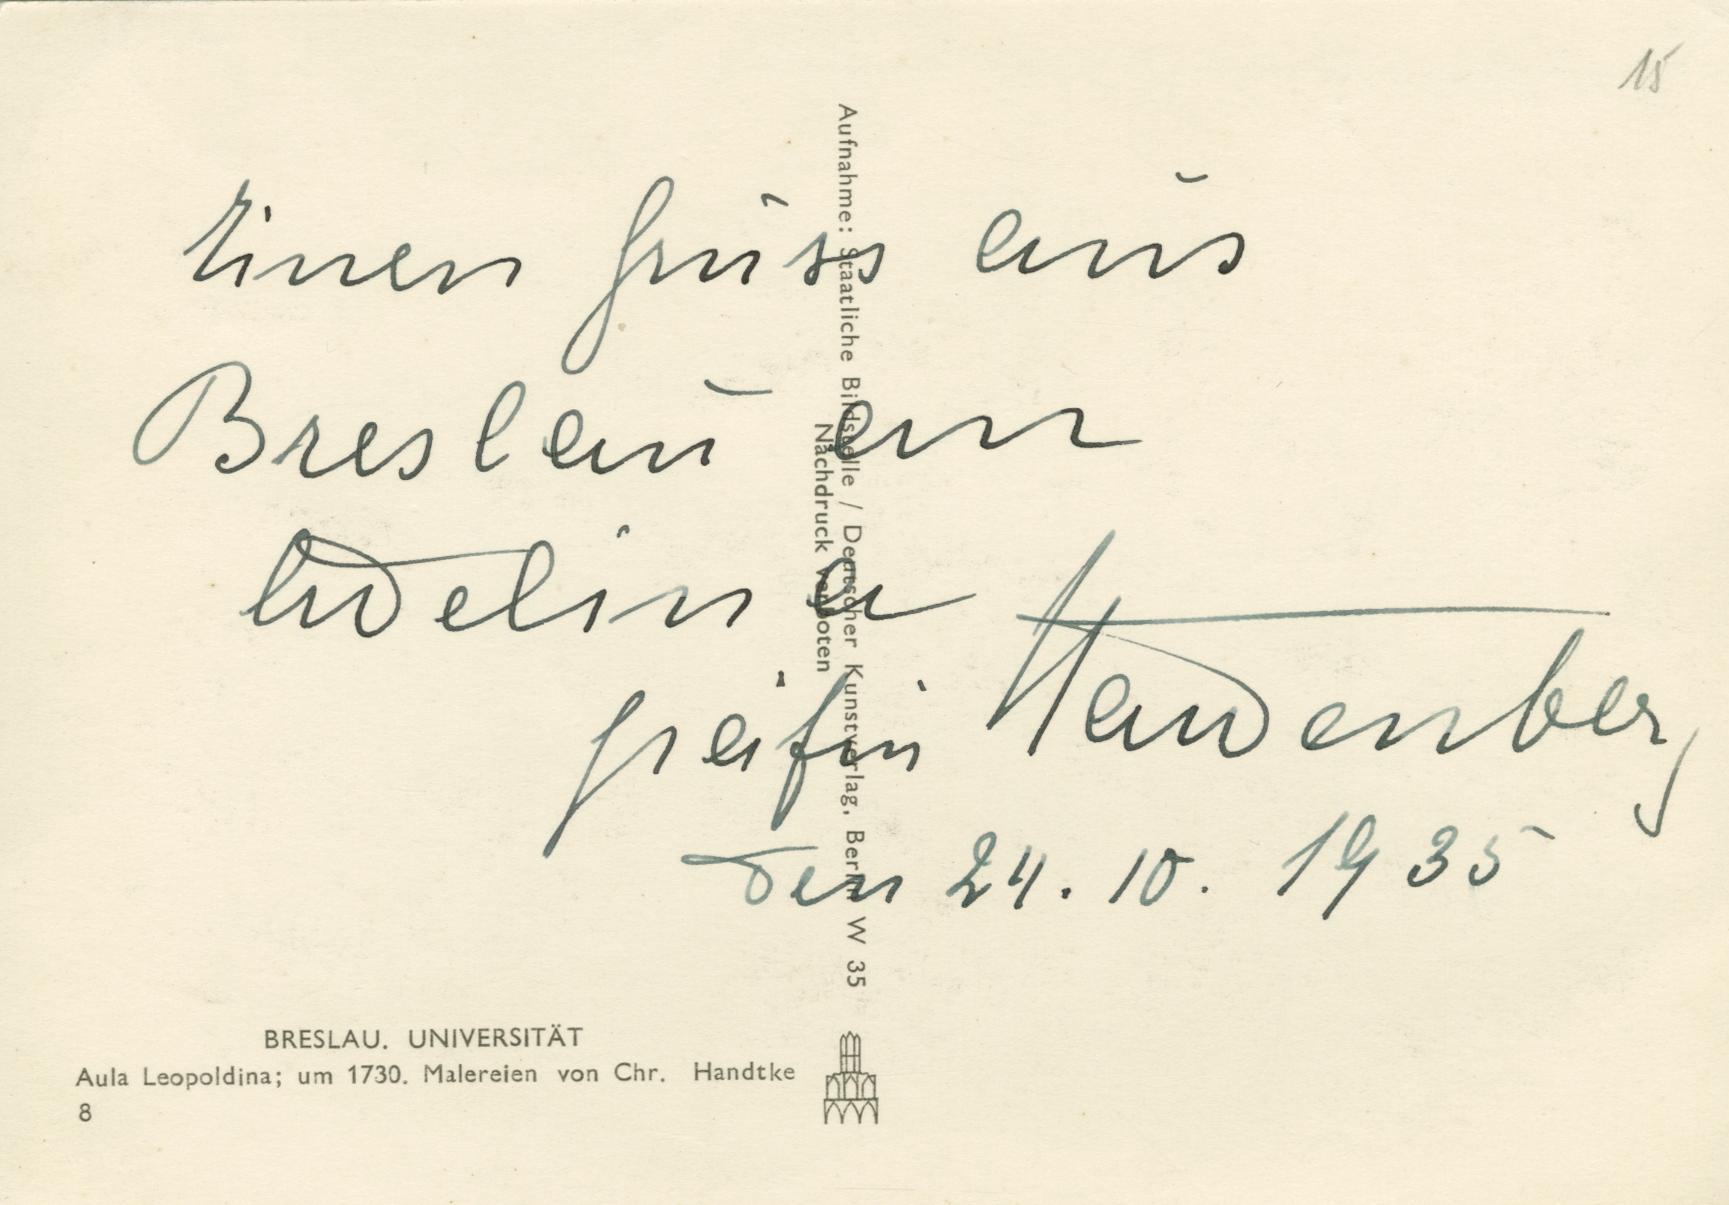 15
Einen Gruss aus
Breslau an
Adelina
Gräfin Hardenberg
den 24. 10. 1935
Aufnahme: Staatliche Bildstelle / Deutscher Kunstverlag, Berlin W 35
Nachdruck verboten
BRESLAU. UNIVERSITÄT
Aula Leopoldina; um 1730. Malereien von Chr. Handtke
8